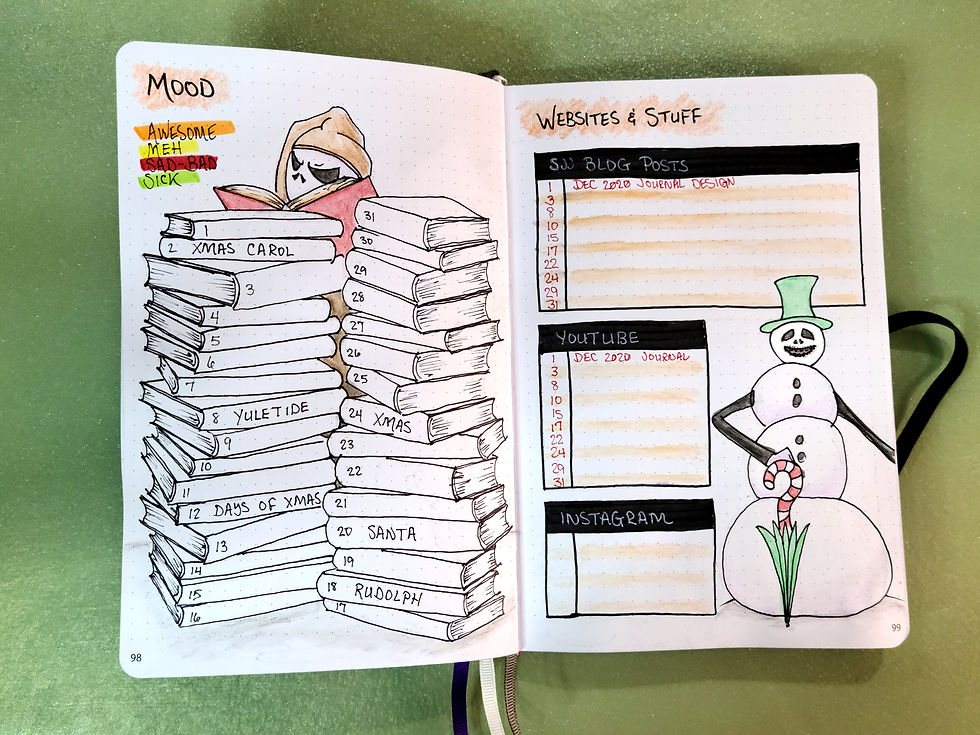 MOOD
AWESOME
MEH
SAD-BAD
SICK
1
2 XMAS CAROL
3
4
5
6
7
8 YULETIDE
9
10
11
12 DAYS OF XMAS
13
14
15
16
31
30
29
28
27
26
25
24 XMAS
23
22
21
20 SANTA
19
18 RUDOLPH
17
98
WEBSITES & STUFF
BLOG POSTS
1 DEC 2020 JOURNAL DESIGN
3
8
10
15
17
22
24
29
31
YOUTUBE
1 DEC 2020 JOURNAL
3
8
10
15
17
22
24
29
31
INSTAGRAM
99